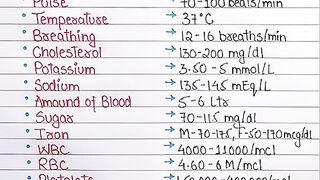 Pulse → 70-100 beats/min
Temperature → 37°C
Breathing → 12-16 breaths/min
Cholesterol → 130-200 mg/dl
Potassium → 3.50 - 5 mmol/L
Sodium → 135-145 mEq/L
Amound of Blood → 5-6 Ltr
Sugar → 70-115 mg/dl
Iron → M-70-175, F-50-170mcg/dl
WBC → 4000-11000/mcl
RBC → 4.60-6 M/mcl
Platelets